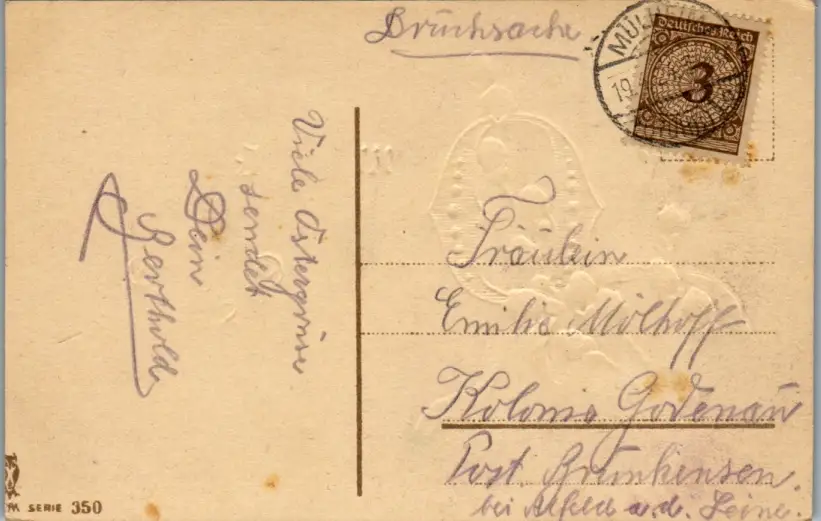 Drucksache
MÜLHEIM
19
Deutsches Reich
3
Viele Ostergrüsse
sendet
Dein
Berthold
Fräulein
Emilie Mölhoff
Kolonie Godenau
Post Brunkensen
bei Alfeld a. d. Leine.
M SERIE 350